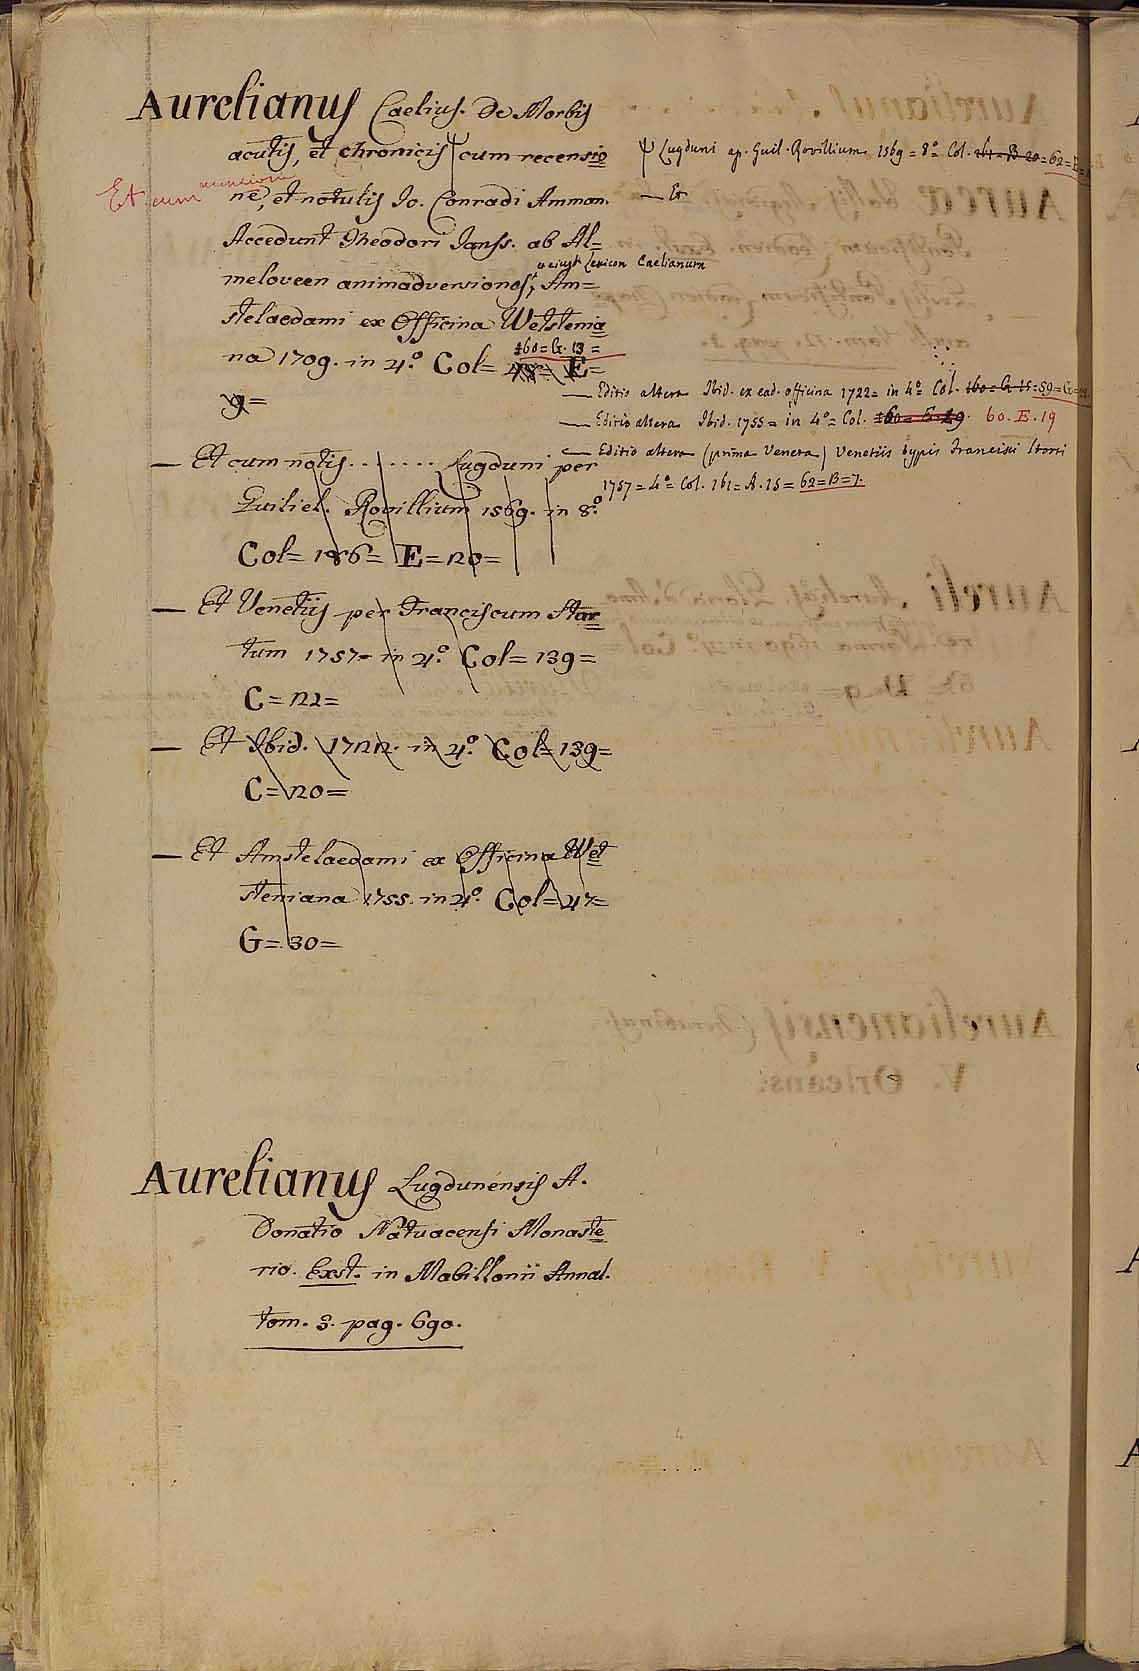 Aurelianus Caelius. De Morbis
acutis, et chronicis Ψ cum recensio
Et cum recensione
ne, et notulis Io. Conradi Amman.
Accedunt Theodori Janss. ab Al=
meloveen animadversiones, Am=
et eiusd. Lexicon Caelianum
stelaedami ex Officina Wetstenia
na 1709. in 4.º Col= E=
160=G. 13=
9=
Ψ Lugduni ap. Guil. Rovillium 1569= 8º= Col. 161=B 20=62=E=
— Et
— Editio altera Ibid. ex ead. officina 1722= in 4º= Col. 160=G 15=59=G=
— Editio altera Ibid. 1755= in 4º= Col. 160=E.19. 60.E.19
— Editio altera (prima Veneta) Venetiis typis Francisci Storti
1757=4º= Col. 161=A.15=62=B=7.
— Et cum notis....... Lugduni per
Guiliel. Rovillium 1569. in 8.º
Col=186= E=20=
— Et Venetiis per Franciscum Stor
tum 1757= in 4.º Col=139=
C=22=
— Et Ibid. 1722. in 4.º Col=139=
C=20=
— Et Amstelaedami ex Officina Wet
steniana 1755. in 4.º Col=47=
G=30=
Aurelianus Lugdunensis A.
Donatio Natuacensi Monaste
rio. Exst. in Mabillonii Annal.
tom. 3. pag. 690.